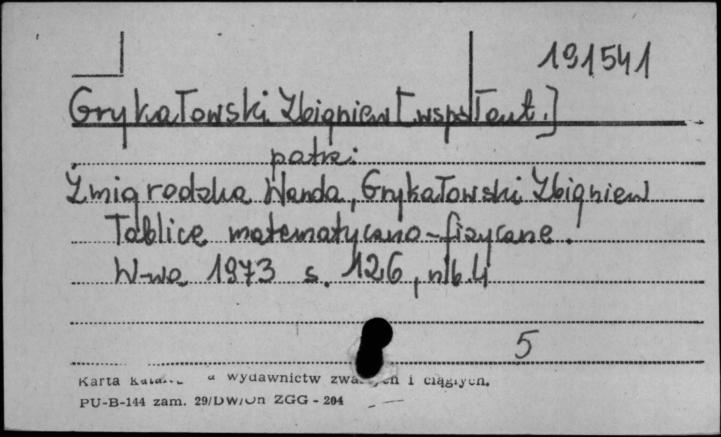 191541
Grykałowski Zbigniew [współaut.]
patrz:
Żmigrodzka Wanda, Grykałowski Zbigniew
Tablice matematyczno-fizyczne.
W-wa 1973 s. 126, nlb. 4
5
Karta wydawnictw zwartych i ciągłych.
PU-B-144 zam. 29/DW/Dn ZGG - 204